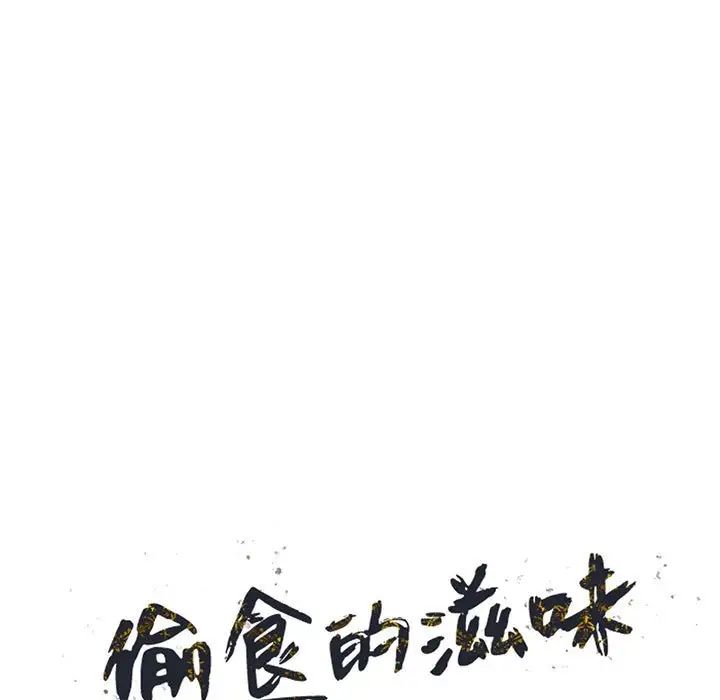 偷食的滋味